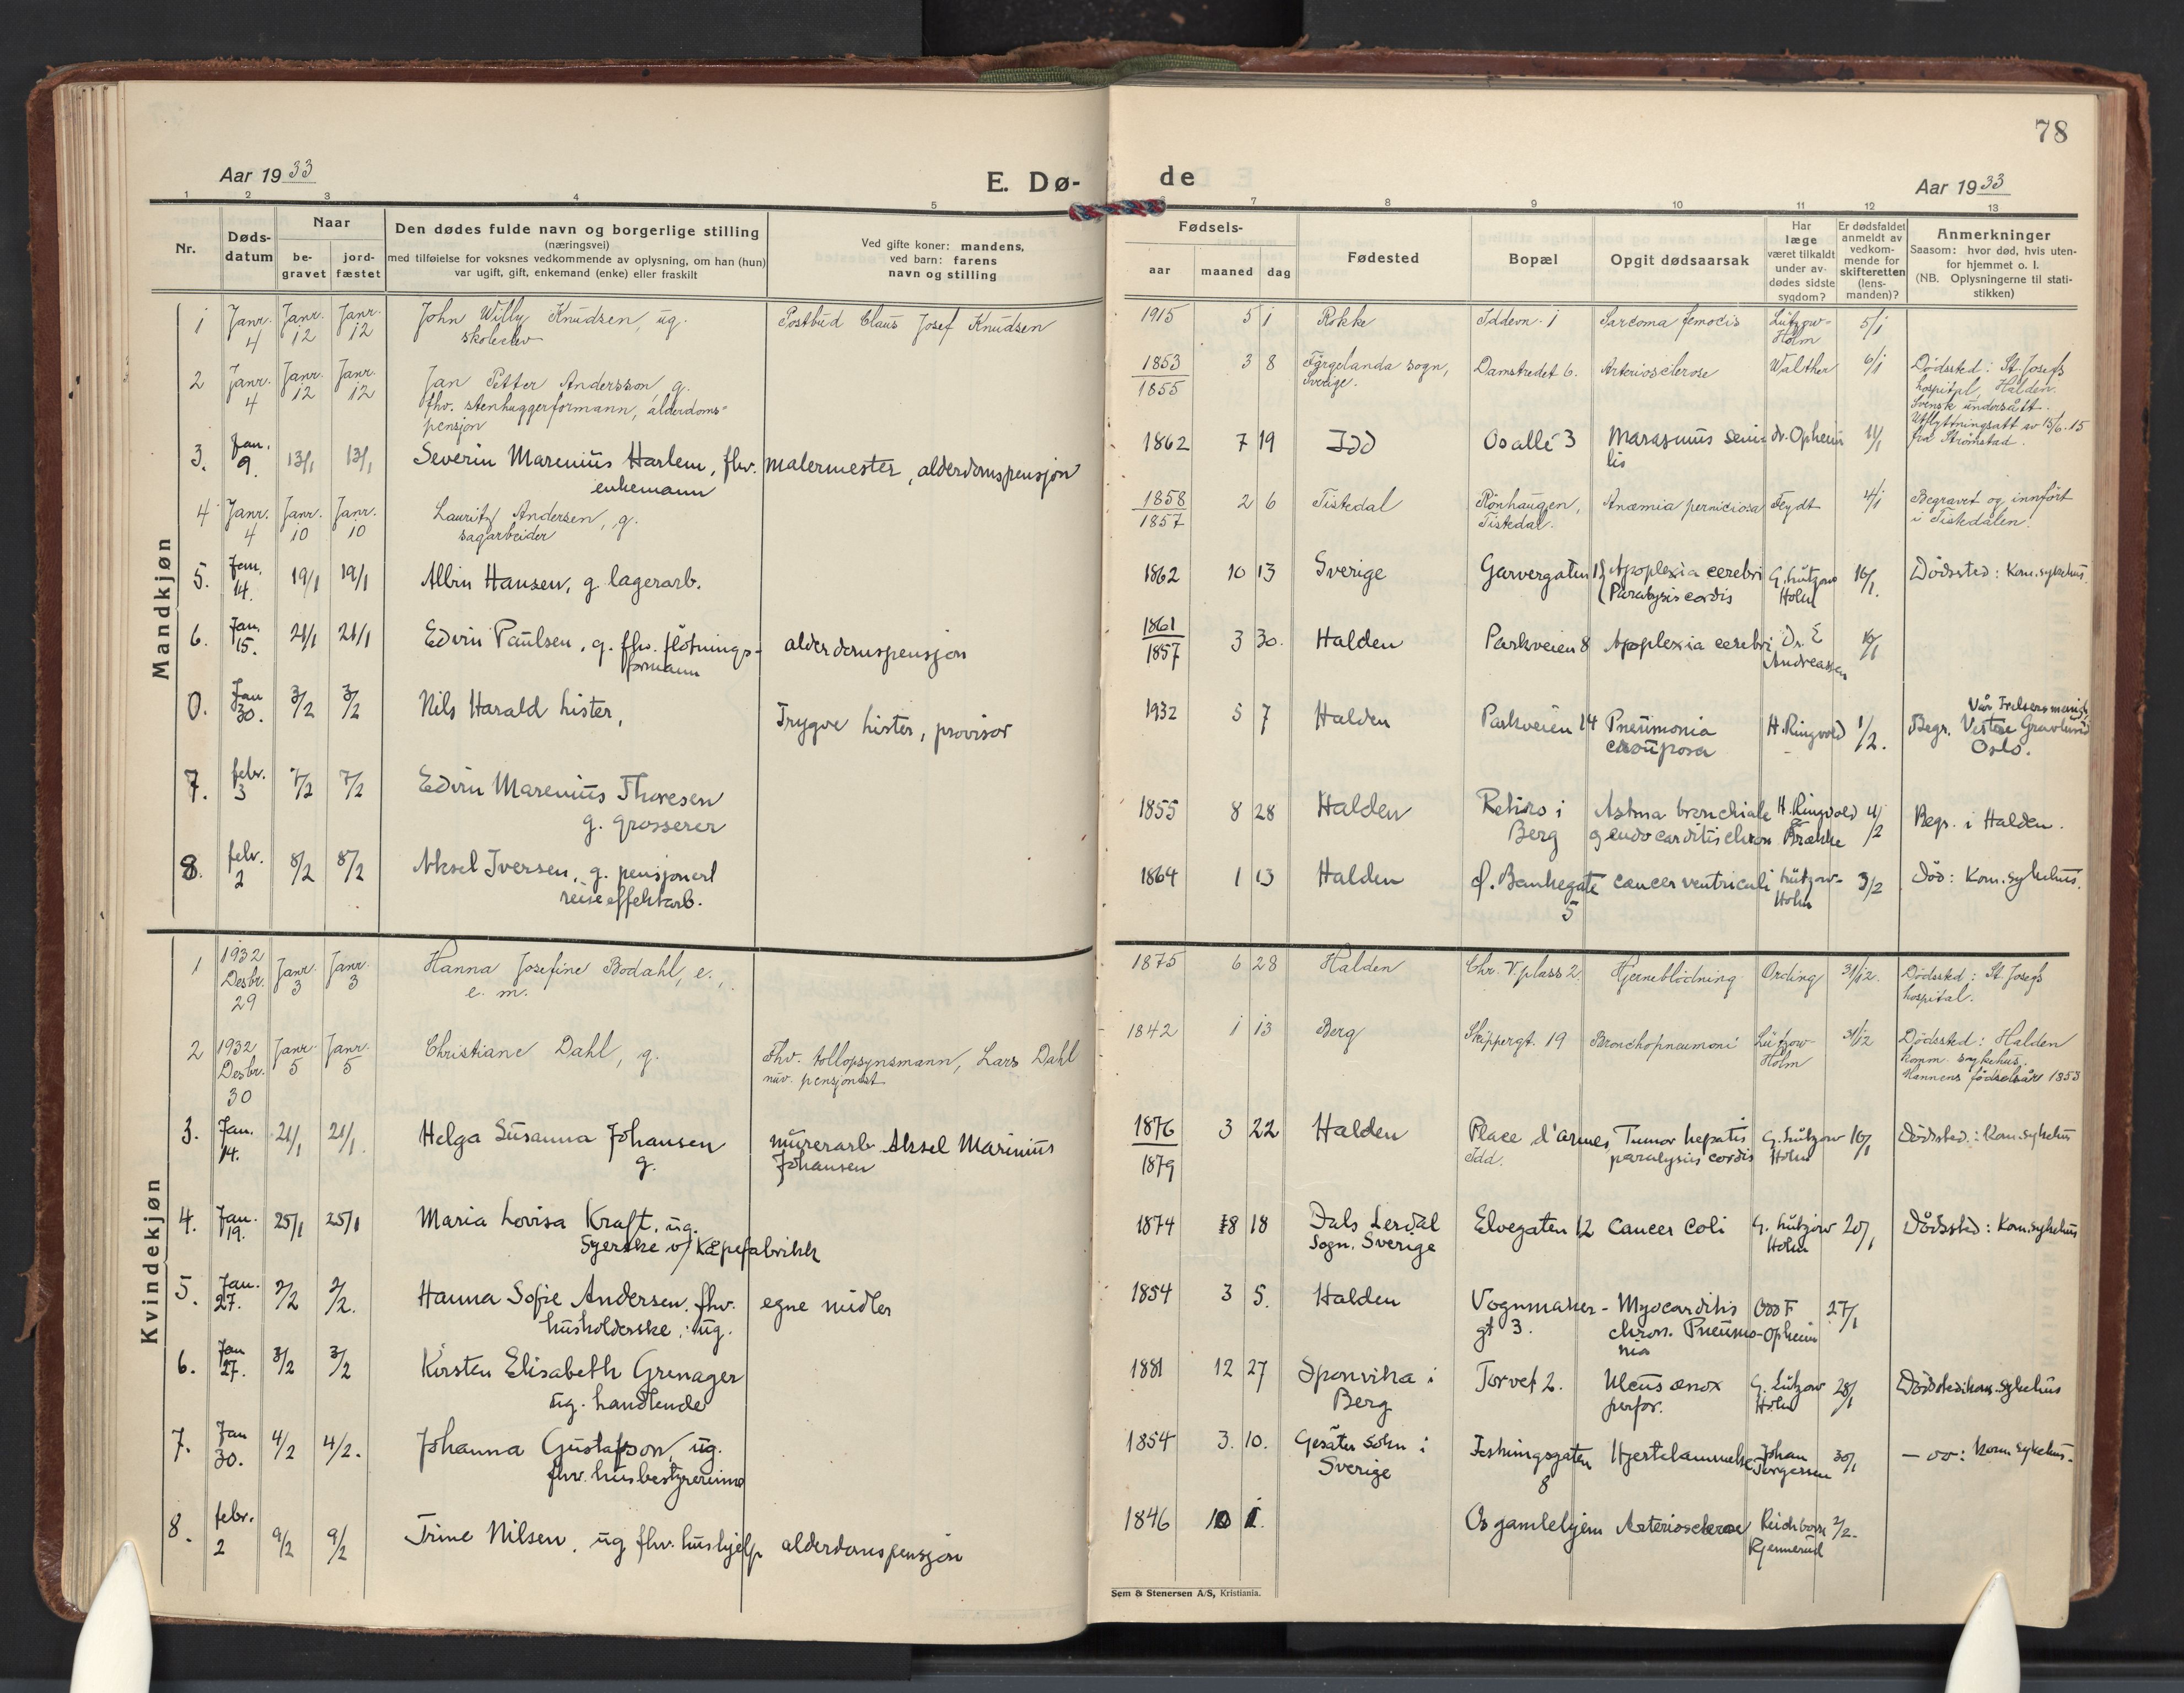 78
Aar 1933
E. Dø-
de
Aar 1933
1 2 3 4 5 7 8 9 10 11 12 13
Nr.
Døds-
datum
Naar
be-
gravet
jord-
fæstet
Den dødes fulde navn og borgerlige stilling
(næringsvei)
med tilføielse for voksnes vedkommende av oplysning, om han (hun)
var ugift, gift, enkemand (enke) eller fraskilt
Ved gifte koner: mandens,
ved barn: farens
navn og stilling
Fødsels-
aar
maaned
dag
Fødested
Bopæl
Opgit dødsaarsak
Har
læge
været tilkaldt
under av-
dødes sidste
sygdom?
Er dødsfaldet
anmeldt av
vedkom-
mende for
skifteretten
(lens-
manden)?
Anmerkninger
Saasom: hvor død, hvis uten-
for hjemmet o. l.
(NB. Oplysningerne til stati-
stikken)
Mandkjøn
1 Janr. 4 Janr. 12 Janr. 12 John Willy Knudsen, ug. Postbud Claus Josef Knudsen 1915 5 1 Rokke Iddevn. 1 Sarcoma femoris Lützow- 5/1
skoleelev Holm
2 Janr. 4 Janr. 12 Janr. 12 Jan Petter Andersson, g. 1853 3 8 Färgelanda sogn, Damstredet 6. Arteriosclerose Walther 6/1 Dødssted: St. Josefs
fhv. stenhuggerformann, alderdoms- 1855 Sverige. hospital, Halden.
pensjon Svensk undersått.
Utflyttningsatt av 15/6-15
fra Strømstad.
3. Jan. 9. 13/1 13/1 Severin Marenius Harlem, fhv. malermester, alderdomspensjon 1862 7 19 Idd Os allé 3 Marasmus seni Dr. Opheim 11/1
enkemann lis
4 Janr. 4 Janr. 10 Janr. 10 Lauritz Andersen, g. 1858 2 6 Tistedal Rönhaugen, Anæmia perniciosa Feydt 4/1 Begravet og innfört
sagarbeider 1857 Tistedal. i Tistedalen.
5. Jan. 14. 19/1 19/1 Albin Hansen, g. lagerarb. 1862 10 13 Sverige Garvergaten Apoplexia cerebri G. Lützow 16/1. Dödssted: Kom. sykehus.
Paralysis cordis Holm
6. Jan. 15. 21/1 21/1 Edvin Paulsen, g. fhv. flötnings- alderdomspensjon 1861 3 30. Halden Parkveien 8 Apoplexia cerebri Dr. E
formann 1857 Andreassen
0. Jan 30. 3/2 3/2 Nils Harald Lister, Trygve Lister, provisor 1932 5 7 Halden Parkveien 14 Pneumonia H. Ringvold 1/2. Begr. Vestre Gravlund
crouposa Oslo.
7. febr. 3 7/2 7/2 Edvin Marenius Thoresen 1855 8 28 Halden Retiro i Astma bronchiale H. Ringvold 4/2 Begr. i Halden.
g. grosserer Berg og endocarditis chron. Brække
8. febr. 2 8/2 8/2 Aksel Iversen, g. pensjonert 1864 1 13 Halden O. Bankegate cancer ventriculi Lützow- 3/2 Död: Kom. sykehus.
reiseeffektarb. 5 Holm
Kvindekjøn
1 1932 Desbr. 29 Janr. 3 Janr. 3 Hanna Josefine Bodahl, e., 1875 6 28 Halden Chr. V. plass 2. Hjerneblödning Ording 31/12. Dödssted: St. Josefs
e. m. hospital.
2 1932 Desbr. 30 Janr. 5 Janr. 5 Christiane Dahl, g. Fhv. tollopsynsmann, Lars Dahl 1842 1 13 Berg Skippergt. 19 Bronchopneumoni Lützow- 31/12 Dödssted: Halden
nuv. pensjonist Holm komm. sykehus.
Mannens födselsår 1853
3. Jan. 14. 21/1 21/1 Helga Susanna Johansen murerarb. Aksel Marinius 1876 3 22 Halden Place d'armes Tumor hepatis G. Lützow 16/1 Dödssted: Kom. sykehus
g. Johansen 1879 Idd. paralysis cordis Holm
4. Jan. 19. 25/1 25/1 Maria Lovisa Kraft, ug. 1874 8 18 Dals Lerdal Elvegaten 12 Cancer Coli G. Lützow 20/1 Dödssted: Kom. sykehus
Syerske v/ Kåpefabrikk Sogn. Sverige Holm
5. Jan. 27. 2/2 2/2. Hanna Sofie Andersen, fhv. egne midler 1854 3 5. Halden Vognmaker- Myocarditis Odd F 27/1
husholderske, ug. gt 3. chron. Pneumo- Opheim
nia
6. Jan 27. 3/2 3/2 Kirsten Elisabeth Grenager 1881 12 27 Sponvika i Torvet 2. Ulcus G. Lützow 28/1 Dödssted: kom. sykehus
ug. handlende Berg perfor. Holm
7. Jan 30. 4/2 4/2. Johanna Gustafson, ug. 1854 3. 10. Gesäter sokn i Festningsgaten Hjertelammelse Johan 30/1 — oo: kom. sykehus.
fhv. husbestyrerinne Sverige 8 Torgersen
8. febr. 2 9/2 9/2 Trine Nilsen, ug fhv. hushjelp alderdomspensjon 1846 10 1. Os gamlehjem Arteriosclerose 2/2.
Sem & Stenersen A/S, Kristiania.